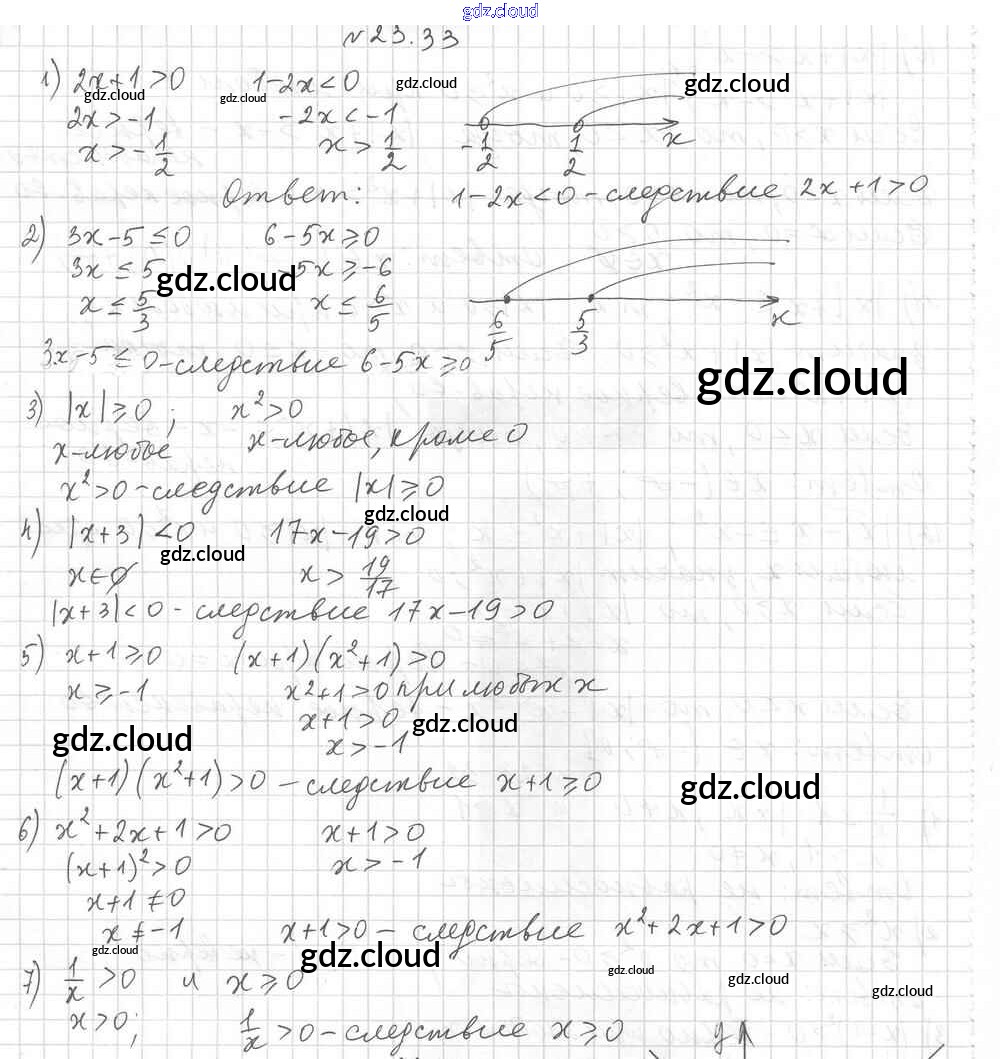 gdz.cloud
№23.33
1) 2x+1>0 1-2x<0 gdz.cloud gdz.cloud
gdz.cloud gdz.cloud
2x>-1 -2x<-1
x>-1/2 x>1/2 -1/2 1/2 x
Ответ: 1-2x<0-следствие 2x+1>0
2) 3x-5≤0 6-5x≥0
3x≤5 -5x≥-6
gdz.cloud
x≤5/3 x≤6/5 6/5 5/3 x
3x-5≤0-следствие 6-5x≥0
gdz.cloud
3) |x|≥0; x²>0
x-любое x-любое, кроме 0
x²>0-следствие |x|≥0
gdz.cloud
4) |x+3|<0 17x-19>0
gdz.cloud
x∈∅ x>19/17
|x+3|<0-следствие 17x-19>0
5) x+1≥0 (x+1)(x²+1)>0
x≥-1 x²+1>0 при любых x
x+1>0 gdz.cloud
gdz.cloud x>-1
(x+1)(x²+1)>0 -следствие x+1≥0
gdz.cloud
6) x²+2x+1>0 x+1>0
(x+1)²>0 x>-1
x+1≠0
x≠-1 x+1>0 - следствие x²+2x+1>0
gdz.cloud gdz.cloud
7) 1/x>0 и x≥0 gdz.cloud gdz.cloud gdz.cloud
x>0; 1/x>0-следствие x≥0 y